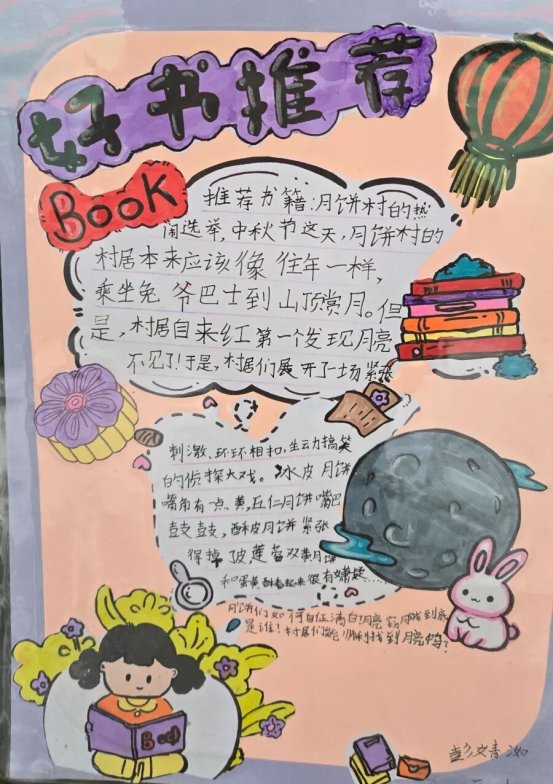 好书推荐
BooK
推荐书籍:月饼村的热
闹选举,中秋节这天,月饼村的
村居本来应该像往年一样,
乘坐兔爷巴士到山顶赏月。但
是,村居自来红第一个发现月亮
不见了!于是,村居们展开了一场紧张
刺激、环环相扣,生动搞笑
的侦探大戏。冰皮月饼
嘴角有点黄,五仁月饼嘴巴
鼓鼓,酥皮月饼紧张
得掉皮,莲蓉双黄月饼
和蛋黄酥看起来很有嫌疑......
月饼们如何自证清白?月亮窃贼到底
是谁!村居们能顺利找到月亮吗?
Book
彭文清